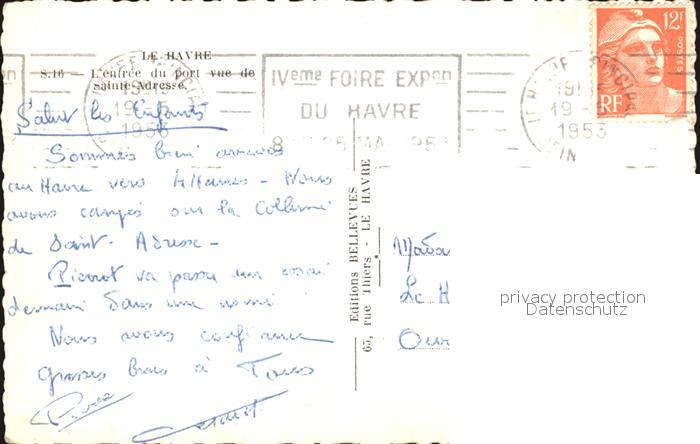 LE HAVRE
S.16 — L'entrée du port vue de
Sainte-Adresse.
IVeme FOIRE EXPon
DU HAVRE
19-5
1953
12F
POSTES
RF
19-5
1953
Salut les Enfants
Sommes bien arrivés
au Havre vers heures - Nous
avons campés sur la Colline
de Saint-Adresse -
Pierrot va passer un essai
demain dans une
Nous avons confiance
Grosses bises à Tous
Editions BELLEVUES
65, rue Thiers - LE HAVRE
Mada
Le H
Our
privacy protection
Datenschutz